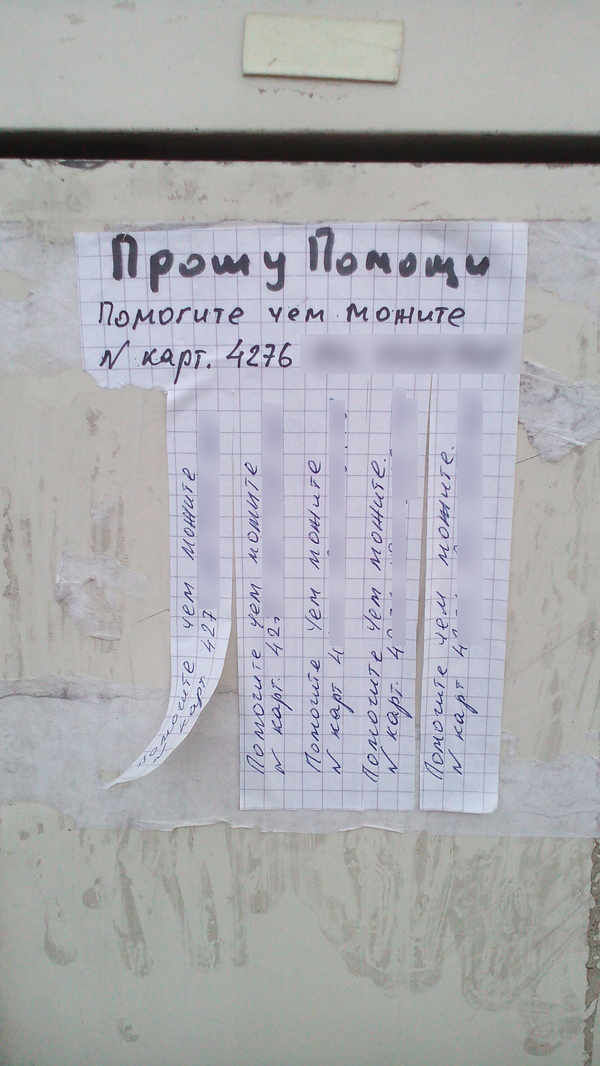 Прошу Помощи
Помогите чем можите
N карт. 4276
Помогите чем можите
N карт. 427
Помогите чем можите
N карт. 427
Помогите чем можите
N карт 4
Помогите чем можите.
N карт. 4
Помогите чем можите.
N карт 4